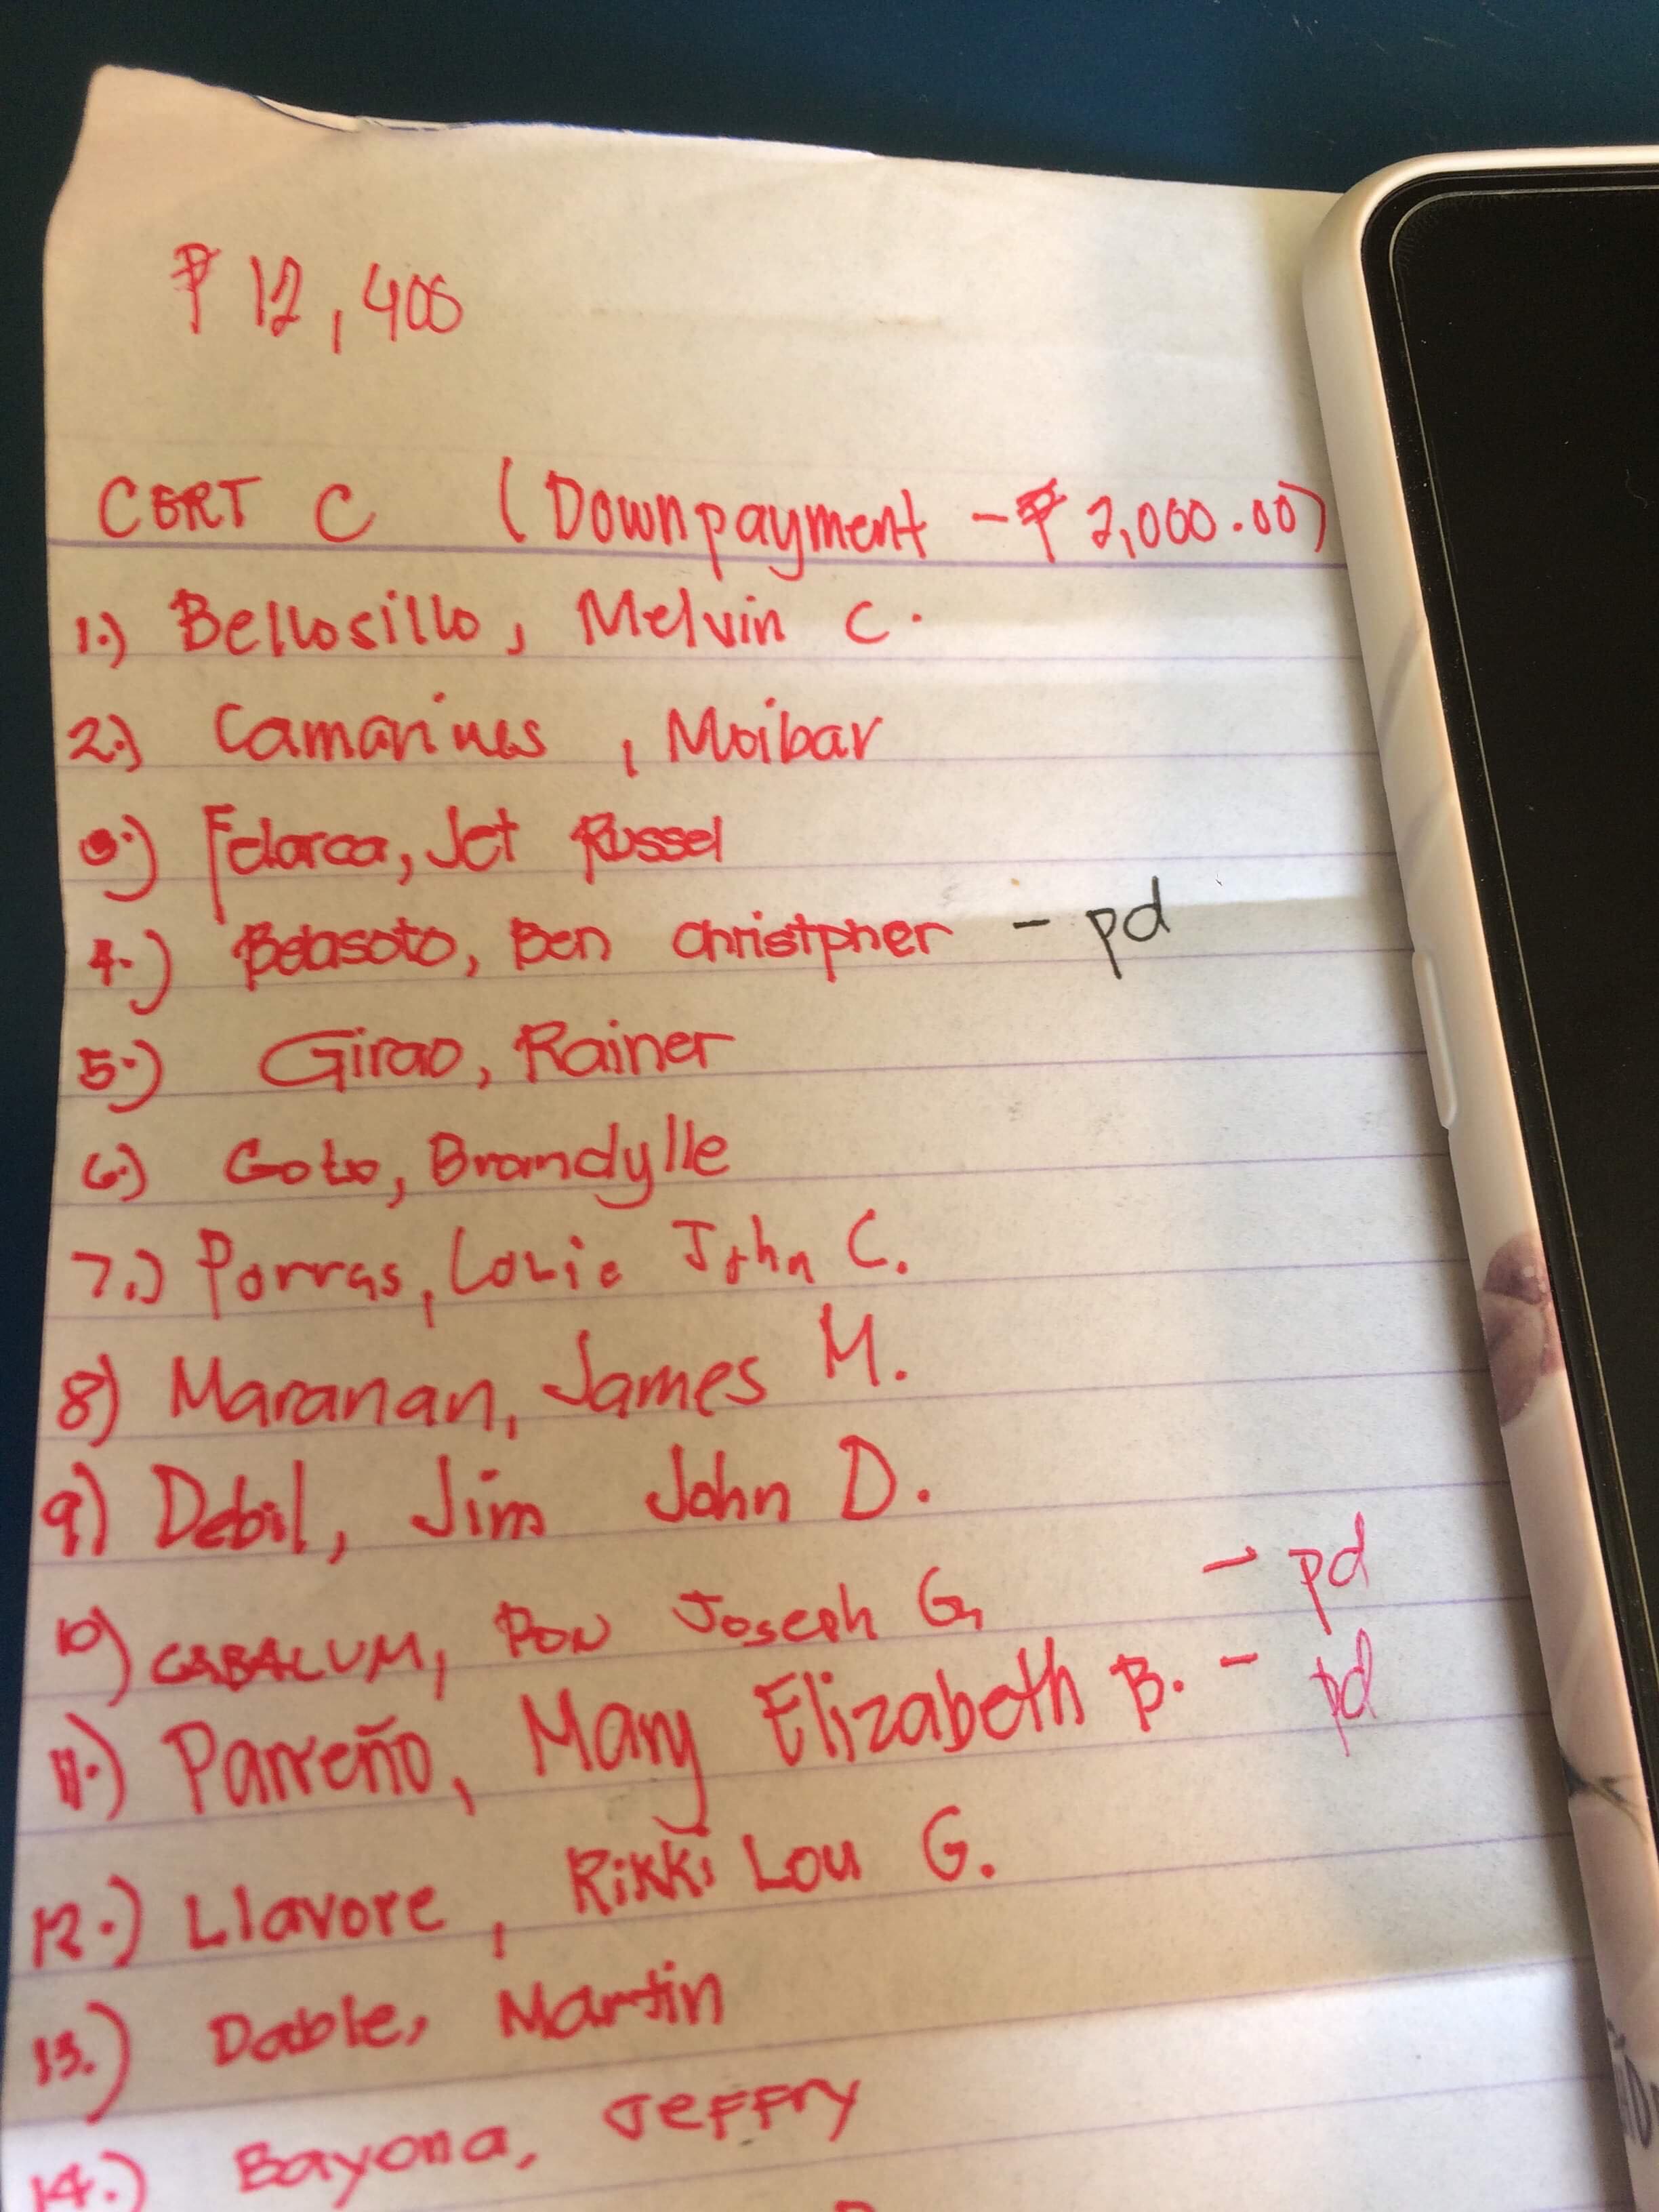 ₱ 12,400
CERT C (Downpayment - ₱ 2,000.00)
1.) Bellosillo, Melvin C.
2.) Camarines, Moibar
3.) Jet Russel
4.) Ben Christpher - pd
5.) Girao, Rainer
6.) Goto, Brandylle
7.) Porras, Louie John C.
8) Maranan, James M.
9) Debil, Jim John D.
10) CABALUM, RON Joseph G. - pd
11.) Parreño, Mary Elizabeth B. - pd
12.) Llavore, Rikki Lou G.
13.) Dable, Martin
14.) Bayona, Jeffry